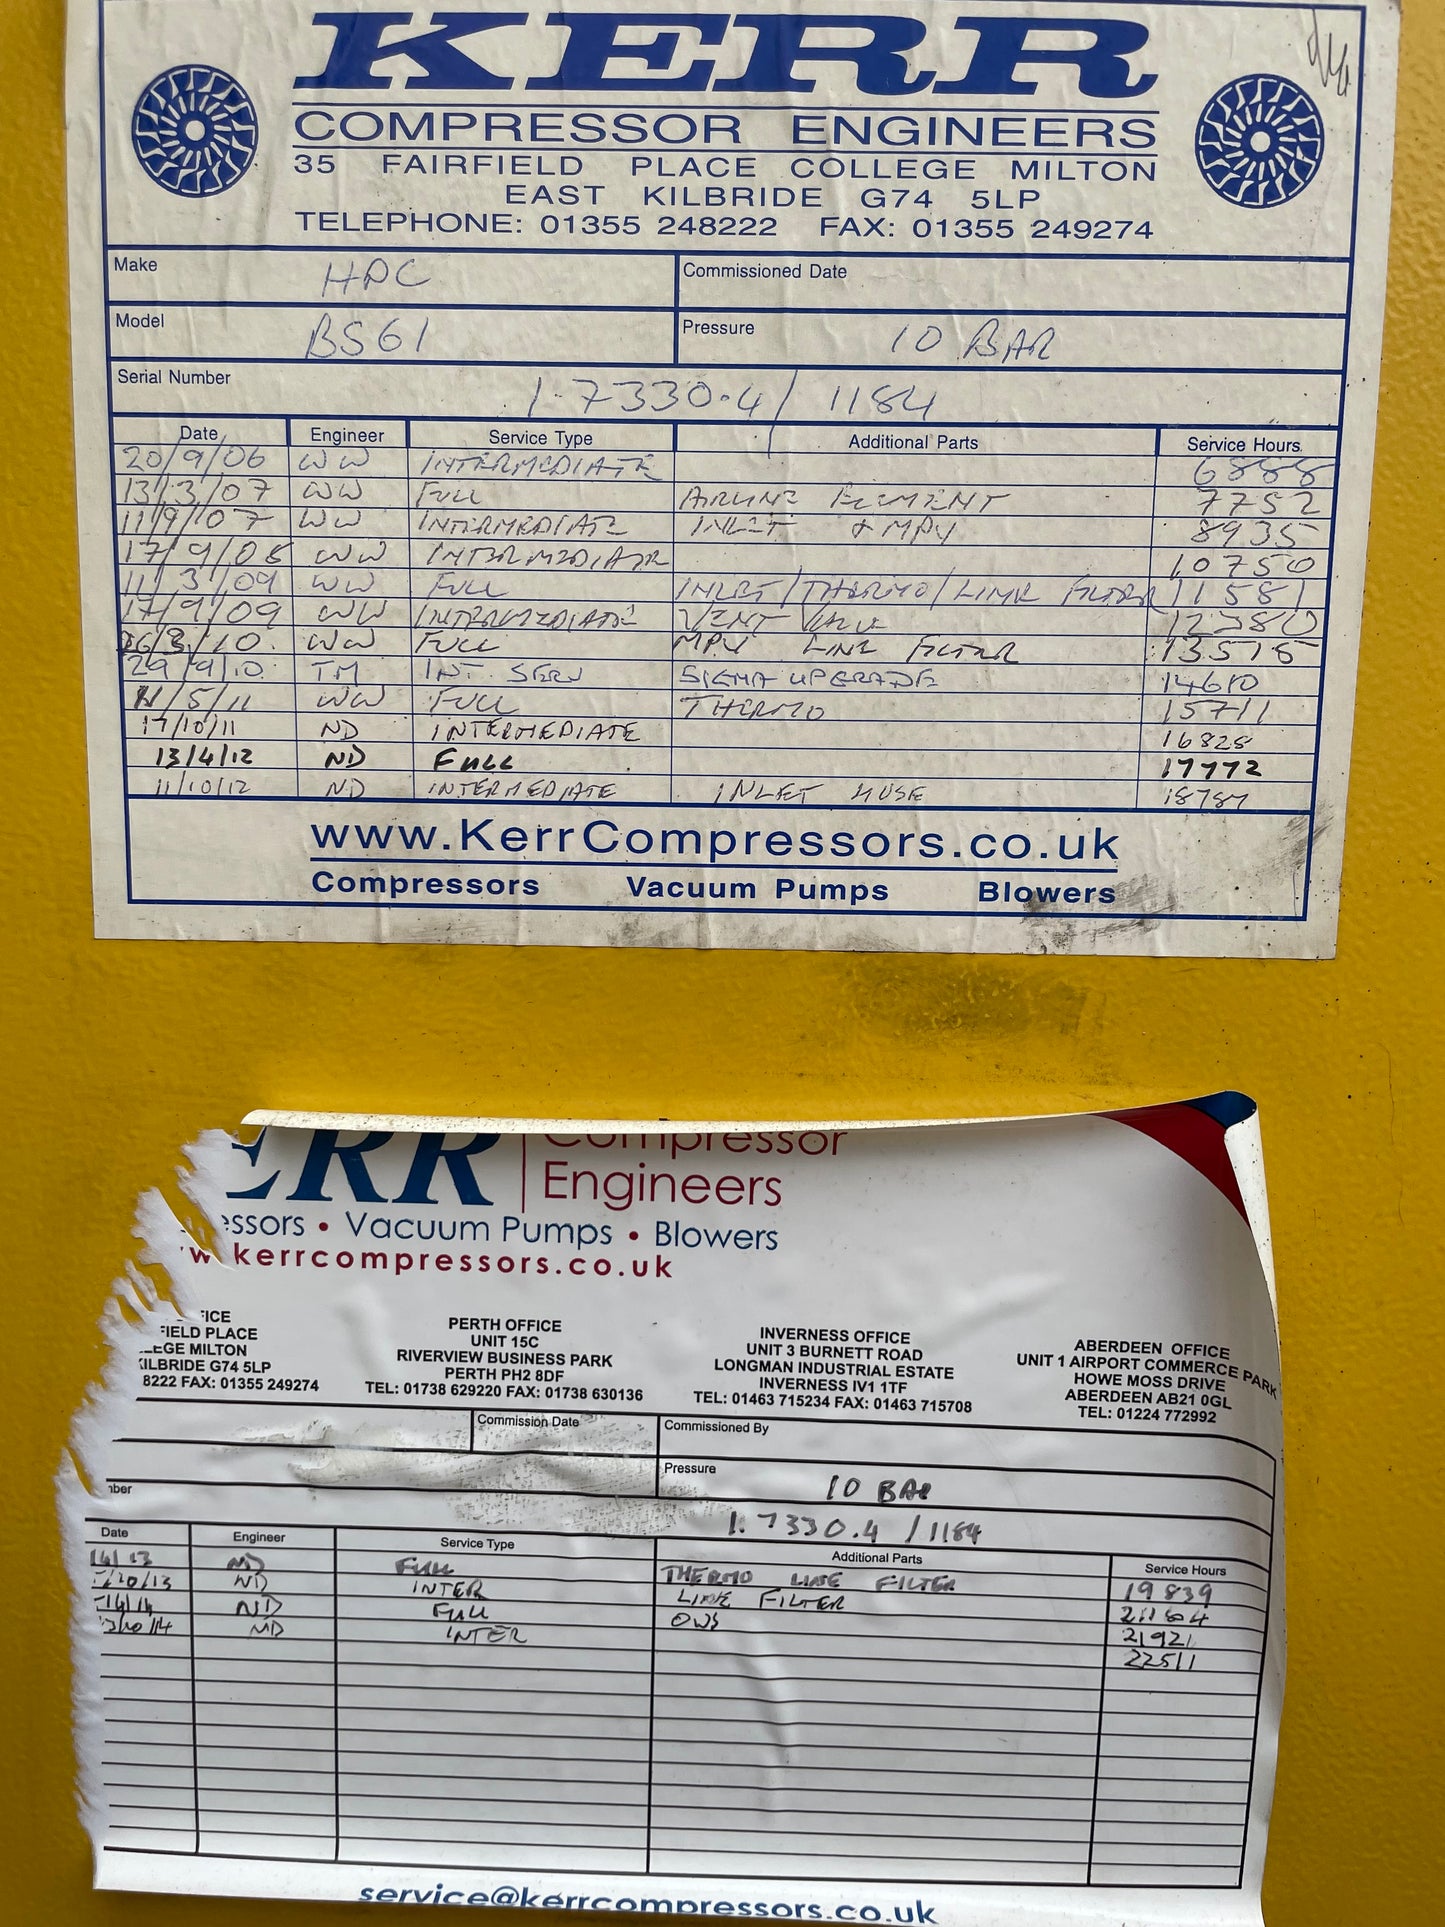 KERR
COMPRESSOR ENGINEERS
35 FAIRFIELD PLACE COLLEGE MILTON
EAST KILBRIDE G74 5LP
TELEPHONE: 01355 248222 FAX: 01355 249274
Make HPC Commissioned Date
Model BS61 Pressure 10 BAR
Serial Number 1.7330.4/1184
Date Engineer Service Type Additional Parts Service Hours
20/9/06 WW INTERMEDIATE 6888
13/3/07 WW FULL AIRLINE ELEMENT 7752
11/9/07 WW INTERMEDIATE INLET & MPV 8935
17/9/08 WW INTERMEDIATE 10750
11/3/09 WW FULL INLET/THERMO/LINE FILTER 11581
17/9/09 WW INTERMEDIATE VENT VALVE
WW FULL MPV LINE FILTER 13515
29/9/10. TM INT. SERV SIGMA UPGRADE 14610
11/5/11 WW FULL THERMO 15711
17/10/11 ND INTERMEDIATE 16828
13/4/12 ND FULL 17772
11/10/12 ND INTERMEDIATE INLET HOSE 18787
www.KerrCompressors.co.uk
Compressors Vacuum Pumps Blowers
ERR Compressor
Engineers
essors • Vacuum Pumps • Blowers
w.kerrcompressors.co.uk
FICE PERTH OFFICE INVERNESS OFFICE ABERDEEN OFFICE
FIELD PLACE UNIT 15C UNIT 3 BURNETT ROAD UNIT 1 AIRPORT COMMERCE PARK
LEGE MILTON RIVERVIEW BUSINESS PARK LONGMAN INDUSTRIAL ESTATE HOWE MOSS DRIVE
KILBRIDE G74 5LP PERTH PH2 8DF INVERNESS IV1 1TF ABERDEEN AB21 0GL
8222 FAX: 01355 249274 TEL: 01738 629220 FAX: 01738 630136 TEL: 01463 715234 FAX: 01463 715708 TEL: 01224 772992
Commission Date Commissioned By
Pressure 10 BAR
mber 1.7330.4/1184
Date Engineer Service Type Additional Parts Service Hours
/4/13 ND FULL THERMO LINE FILTER 19839
/10/13 ND INTER LINE FILTER 21164
/4/14 ND FULL OWS 21921
/10/14 ND INTER 22511
service@kerrcompressors.co.uk